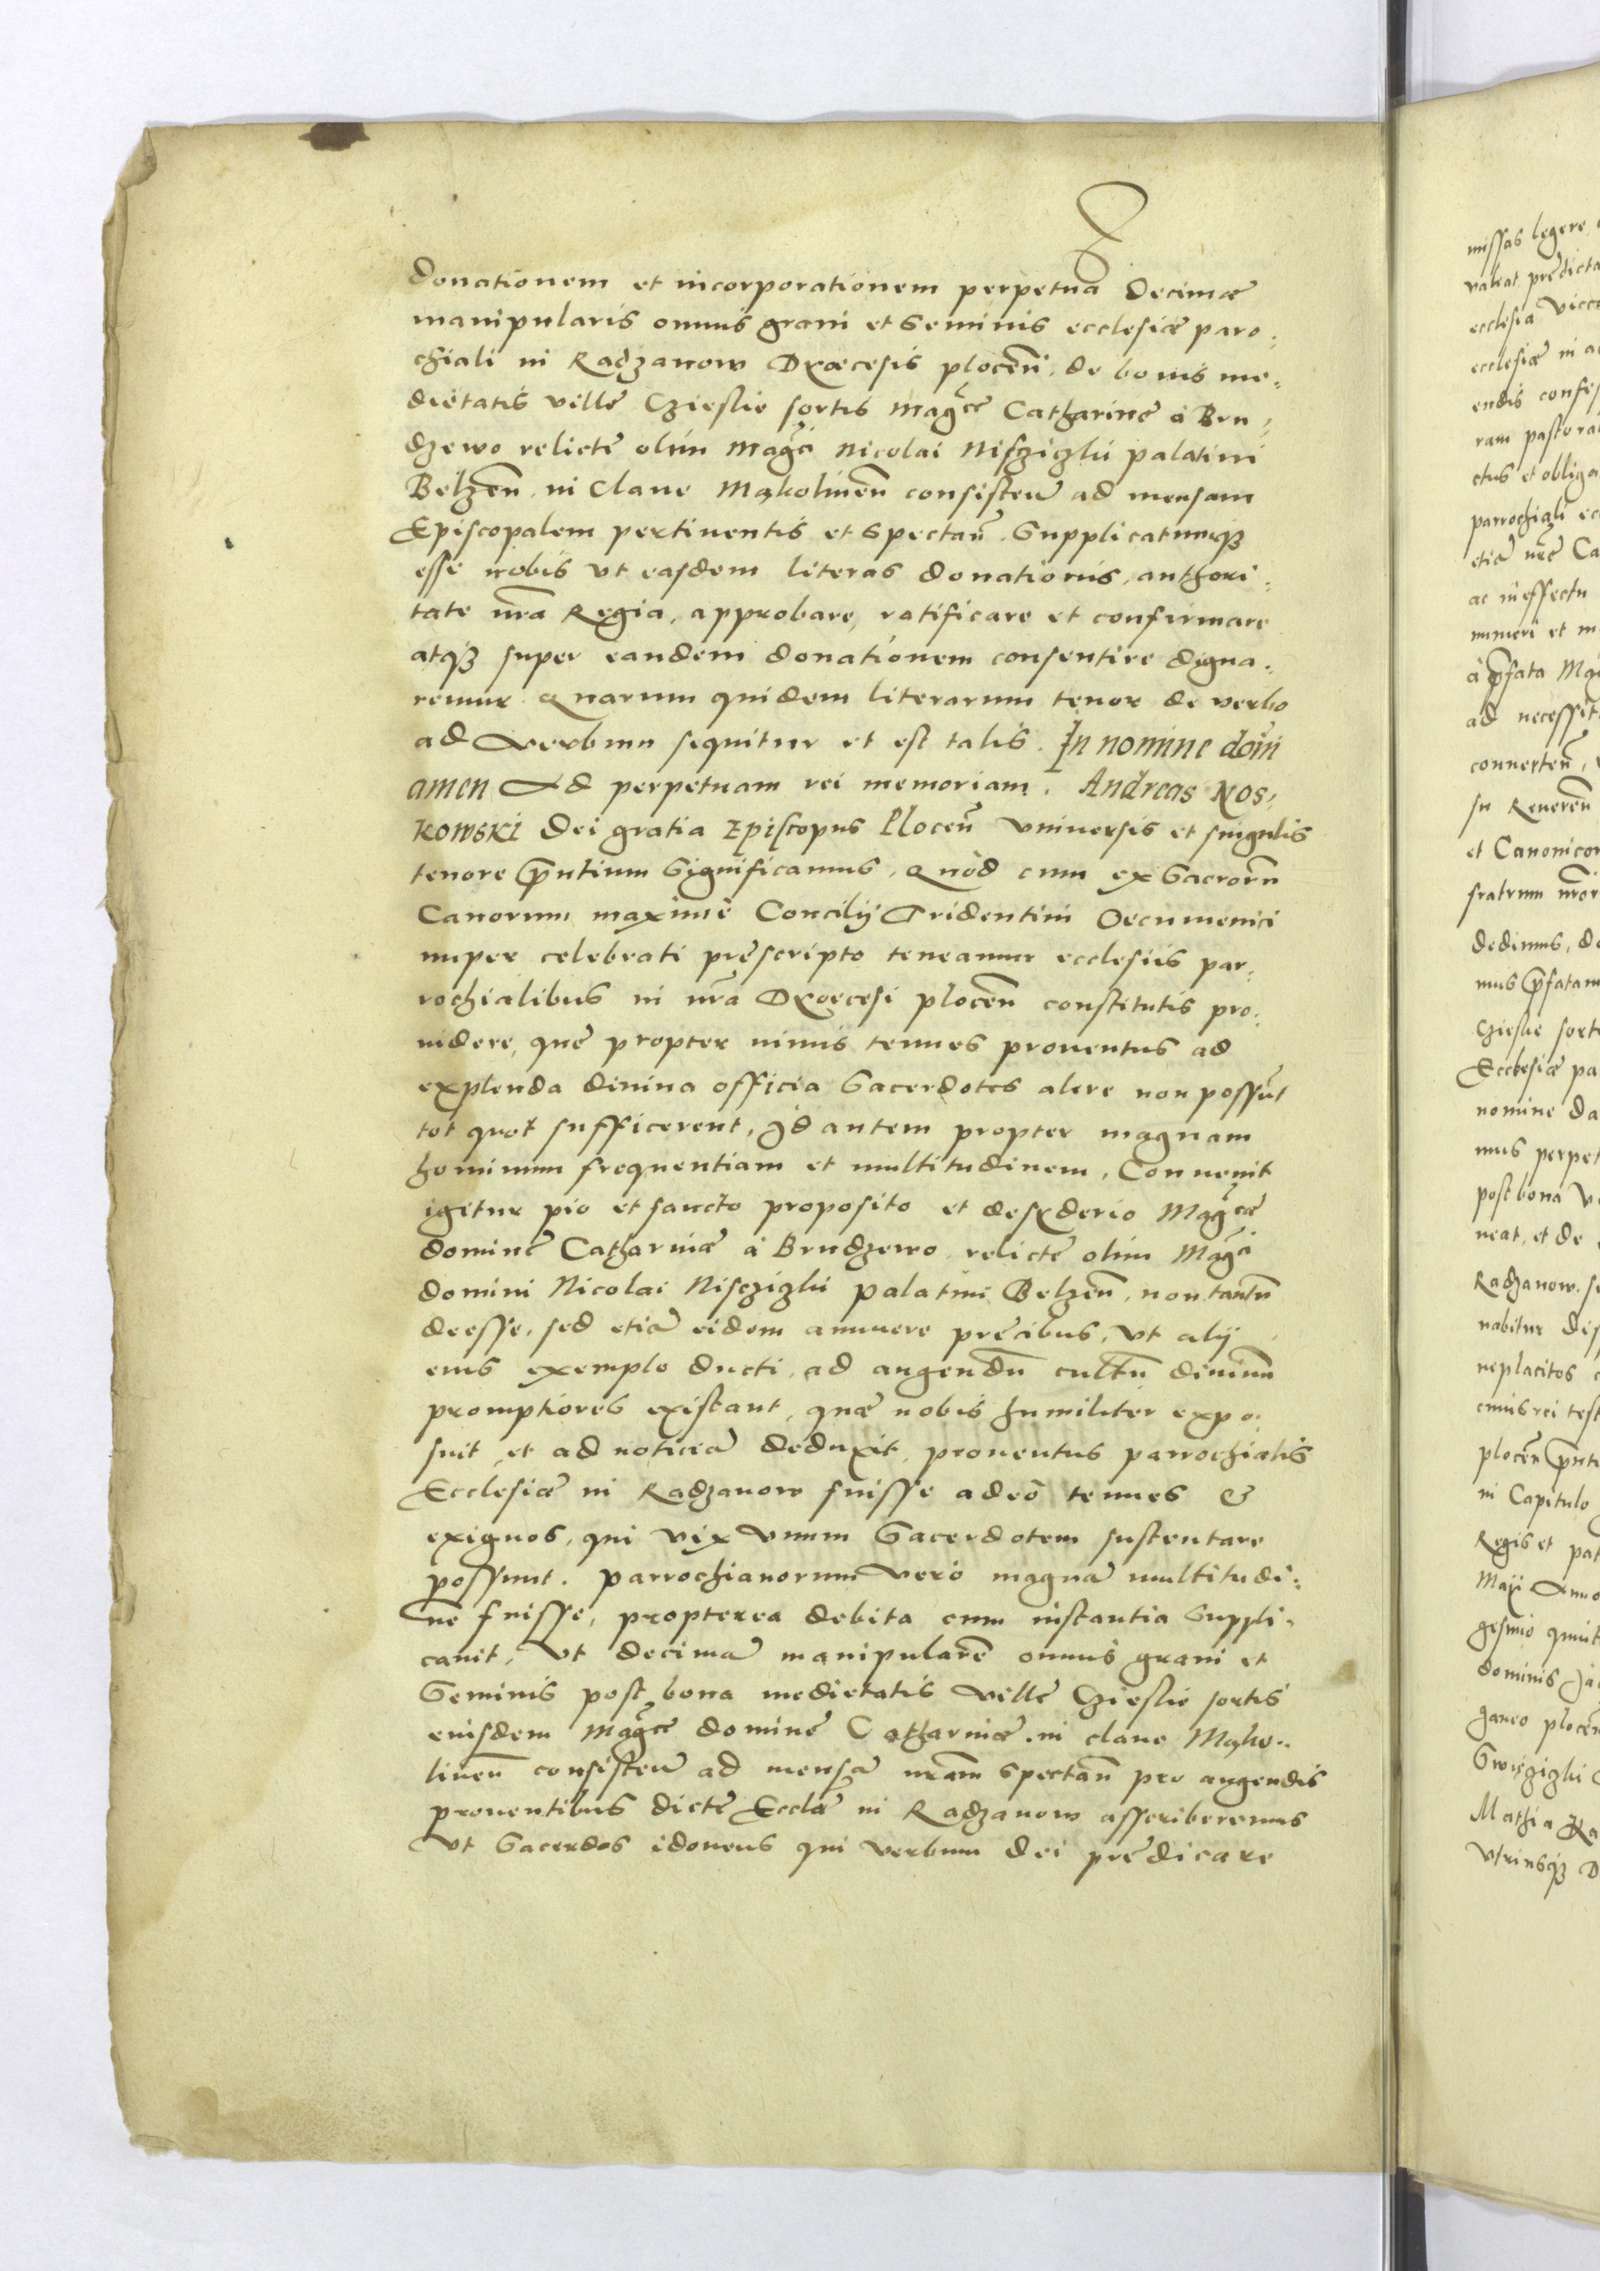 donationem et incorporationem perpetuã decimæ
manipularis omnis grani et seminis ecclesiæ paro-
chiali in Radzanow Diœcesis plocen̄. de bonis me-
dietatis villę Czieslie sortis Mag̃cę Catharinę à Bru-
dzewo relictę olim Mag̃ci Nicolai Nisczizki palatini
Belzen̄. in Claue Mąkolinen̄ consisten̄ ad mensam
Episcopalem pertinentis et spectan̄. Supplicatumq3
esse nobis vt easdem literas donationis, authori-
tate nr̃a Regia, approbare, ratificare et confirmare
atq3 super eandem donationem consentire digna-
remur Quarum quidem literarum tenor de verbo
ad verbum sequitur et est talis. In nomine dom̃i
amen Ad perpetuam rei memoriam. Andreas Nos-
kowski Dei gratia Episcopus Plocen̄ vniuersis et singulis
tenore p̃ntium significamus, Quòd cum ex Sacrorũ
Canorum maximè Concilij Tridentini Oecumenici
nuper celebrati prescripto teneamur ecclesiis par-
rochialibus in nr̃a Diœcesi plocen̄ constitutis pro-
uidere, quę propter nimis tenues prouentus ad
explenda diuina officia Sacerdotes alere non possũt
tot quot sufficerent, Id autem propter magnam
hominum frequentiam et multitudinem, Conuenit
igitur pio et sancto proposito et desyderio Mag̃cæ
dominę Catharinæ à Brudzewo relictę olim Mag̃ci
domini Nicolai Nisczizki palatini Belzen̄, non tantũ
deesse, sed etiã eidem annuere precibus, vt alij
eius exemplo ducti, ad augendũ cultũ diuinũ
promptiores existant, quæ nobis humiliter expo-
suit, et ad noticiã deduxit, prouentus parrochialis
Ecclesiæ in Radzanow fuisse adeò tenues &
exiguos, qui vix vnum Sacerdotem sustentare
possunt. parrochianorum verò magnã multitudi-
nẽ fuisse, propterea debita cum instantia suppli-
cauit, vt decimã manipularẽ omnis grani et
Seminis post bona medietatis villę Czieslie sortis
eiusdem Mag̃cę dominę Catharinæ. in claue Mąko-
linen̄ consisten̄ ad mensã nr̃am spectan̄ pro augendis
prouentibus dictę Eccl̃æ in Radzanow asscriberemus
vt Sacerdos idoneus qui verbum dei prędicare
missas legere
valeat prędicta
ecclesiæ in
endis
ram pastoral
ctus et obliga
parrochiali ec
etiã nr̃ę Ca
ac in effectu
numeri et m
à p̃fata Mag
ad necessit
conuerten̄,
su Reueren̄
et Canonicor
fratrum nr̃or
dedimus, de
mus p̃fatam
Czieslie sort
Ecclesiæ pa
nomine da
mus perpet
post bona v
neat, et de
Radzanow. s
nabitur dis
neplacitos
cuius rei test
plocen̄ p̃nt
in Capitulo
Regis et pat
Maij Anno
gesimo quint
dominis Ja
ganeo plocen̄
Mathia Ra
vtriusq3 D